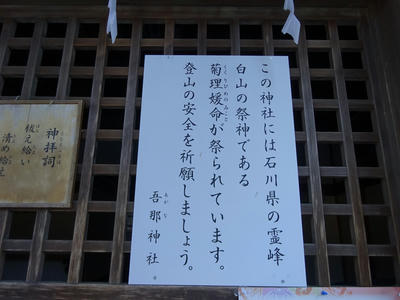 この神社には石川県の霊峰
白山の祭神である
菊理媛命が祭られています。
くくりひめのみこと
登山の安全を祈願しましょう。
吾那神社
あがな
神拝詞
祓え給い
清め給え